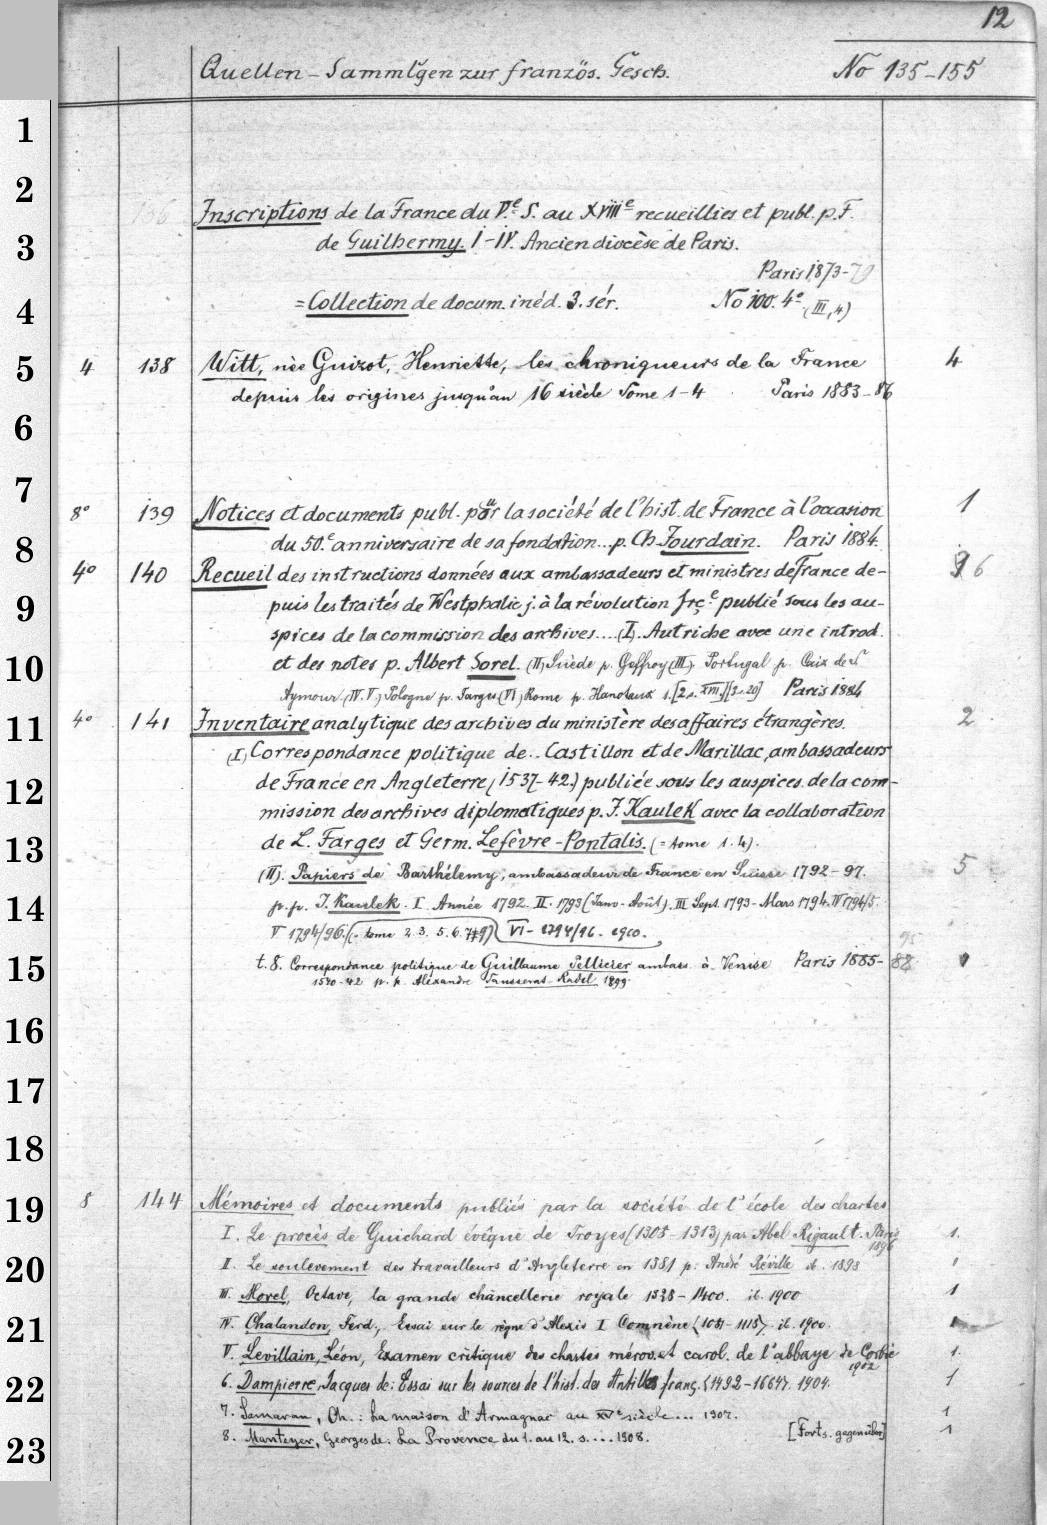 12
Quellen-Sammlgen zur französ. Gesch. No 135-155
1
2
136 Inscriptions de la France du Ve S. au XVIIIe recueillies et publ. p. F.
3 de Guilhermy. I-IV. Ancien diocèse de Paris.
Paris 1873-79
4 = Collection de docum. inéd. 3. sér. No 100. 4° (III, 4)
5 4 138 Witt, née Guizot, Henriette, les chroniqueurs de la France 4
depuis les origines jusqu'au 16 siècle Tome 1-4 Paris 1883-86
6
7
8° 139 Notices et documents publ. pour la société de l'hist. de France à l'occasion 1
8 du 50.e anniversaire de sa fondation... p. Ch. Jourdain. Paris 1884.
4° 140 Recueil des instructions données aux ambassadeurs et ministres de France de- 6
9 puis les traités de Westphalie j. à la révolution frç.e publié sous les au-
spices de la commission des archives.... (I). Autriche avec une introd.
10 et des notes p. Albert Sorel. (II) Suède p. Geffroy (III) Portugal p. Caix de St
Aymour (IV. V) Pologne p. Farges (VI) Rome p. Hanotaux Paris 1884
11 4° 141 Inventaire analytique des archives du ministère des affaires étrangères. 2
(I) Correspondance politique de.. Castillon et de Marillac, ambassadeurs
12 de France en Angleterre (1537-42) publiée sous les auspices de la com-
mission des archives diplomatiques p. J. Kaulek avec la collaboration
13 de L. Farges et Germ. Lefèvre-Pontalis. (= tome 1. 4).
(II). Papiers de Barthélemy, ambassadeur de France en Suisse 1792-97. 5
14 p. p. J. Kaulek. I Année 1792. II. 1793 (Janv-Août). III Sept. 1793-Mars 1794. IV 1794/5.
V 1794/96. (= tome 2. 3. 5. 6. 7 + 9) VI - 1794/96. 1910.
15 t. 8. Correspondance politique de Guillaume Pellicier ambass. à Venise Paris 1885-
1540-42 p. p. Alexandre Tausserat-Radel 1899.
16
17
18
19 8 144 Mémoires et documents publiés par la société de l'école des chartes
I. Le procès de Guichard évêque de Troyes (1308-1313) par Abel Rigault. Paris 1896 1.
20 II. Le soulèvement des travailleurs d'Angleterre en 1381 p: André Réville ib. 1898 1
III. Morel, Octave, la grande chancellerie royale 1328-1400. ib. 1900 1
21 IV. Chalandon, Ferd., Essai sur le règne d'Alexis I Comnène (1081-1118). ib. 1900. 1
V. Levillain, Léon, Examen critique des chartes mérov. et carol. de l'abbaye de Corbie 1902 1.
22 6. Dampierre, Jacques de: Essai sur les sources de l'hist. des Antilles franç. (1492-1664). 1904. 1
7. Samaran, Ch.: La maison d'Armagnac au XVe siècle... 1907. 1
23 8. Manteyer, Georges de: La Provence du 1. au 12. s. ... 1908. [Forts. gegenüber] 1